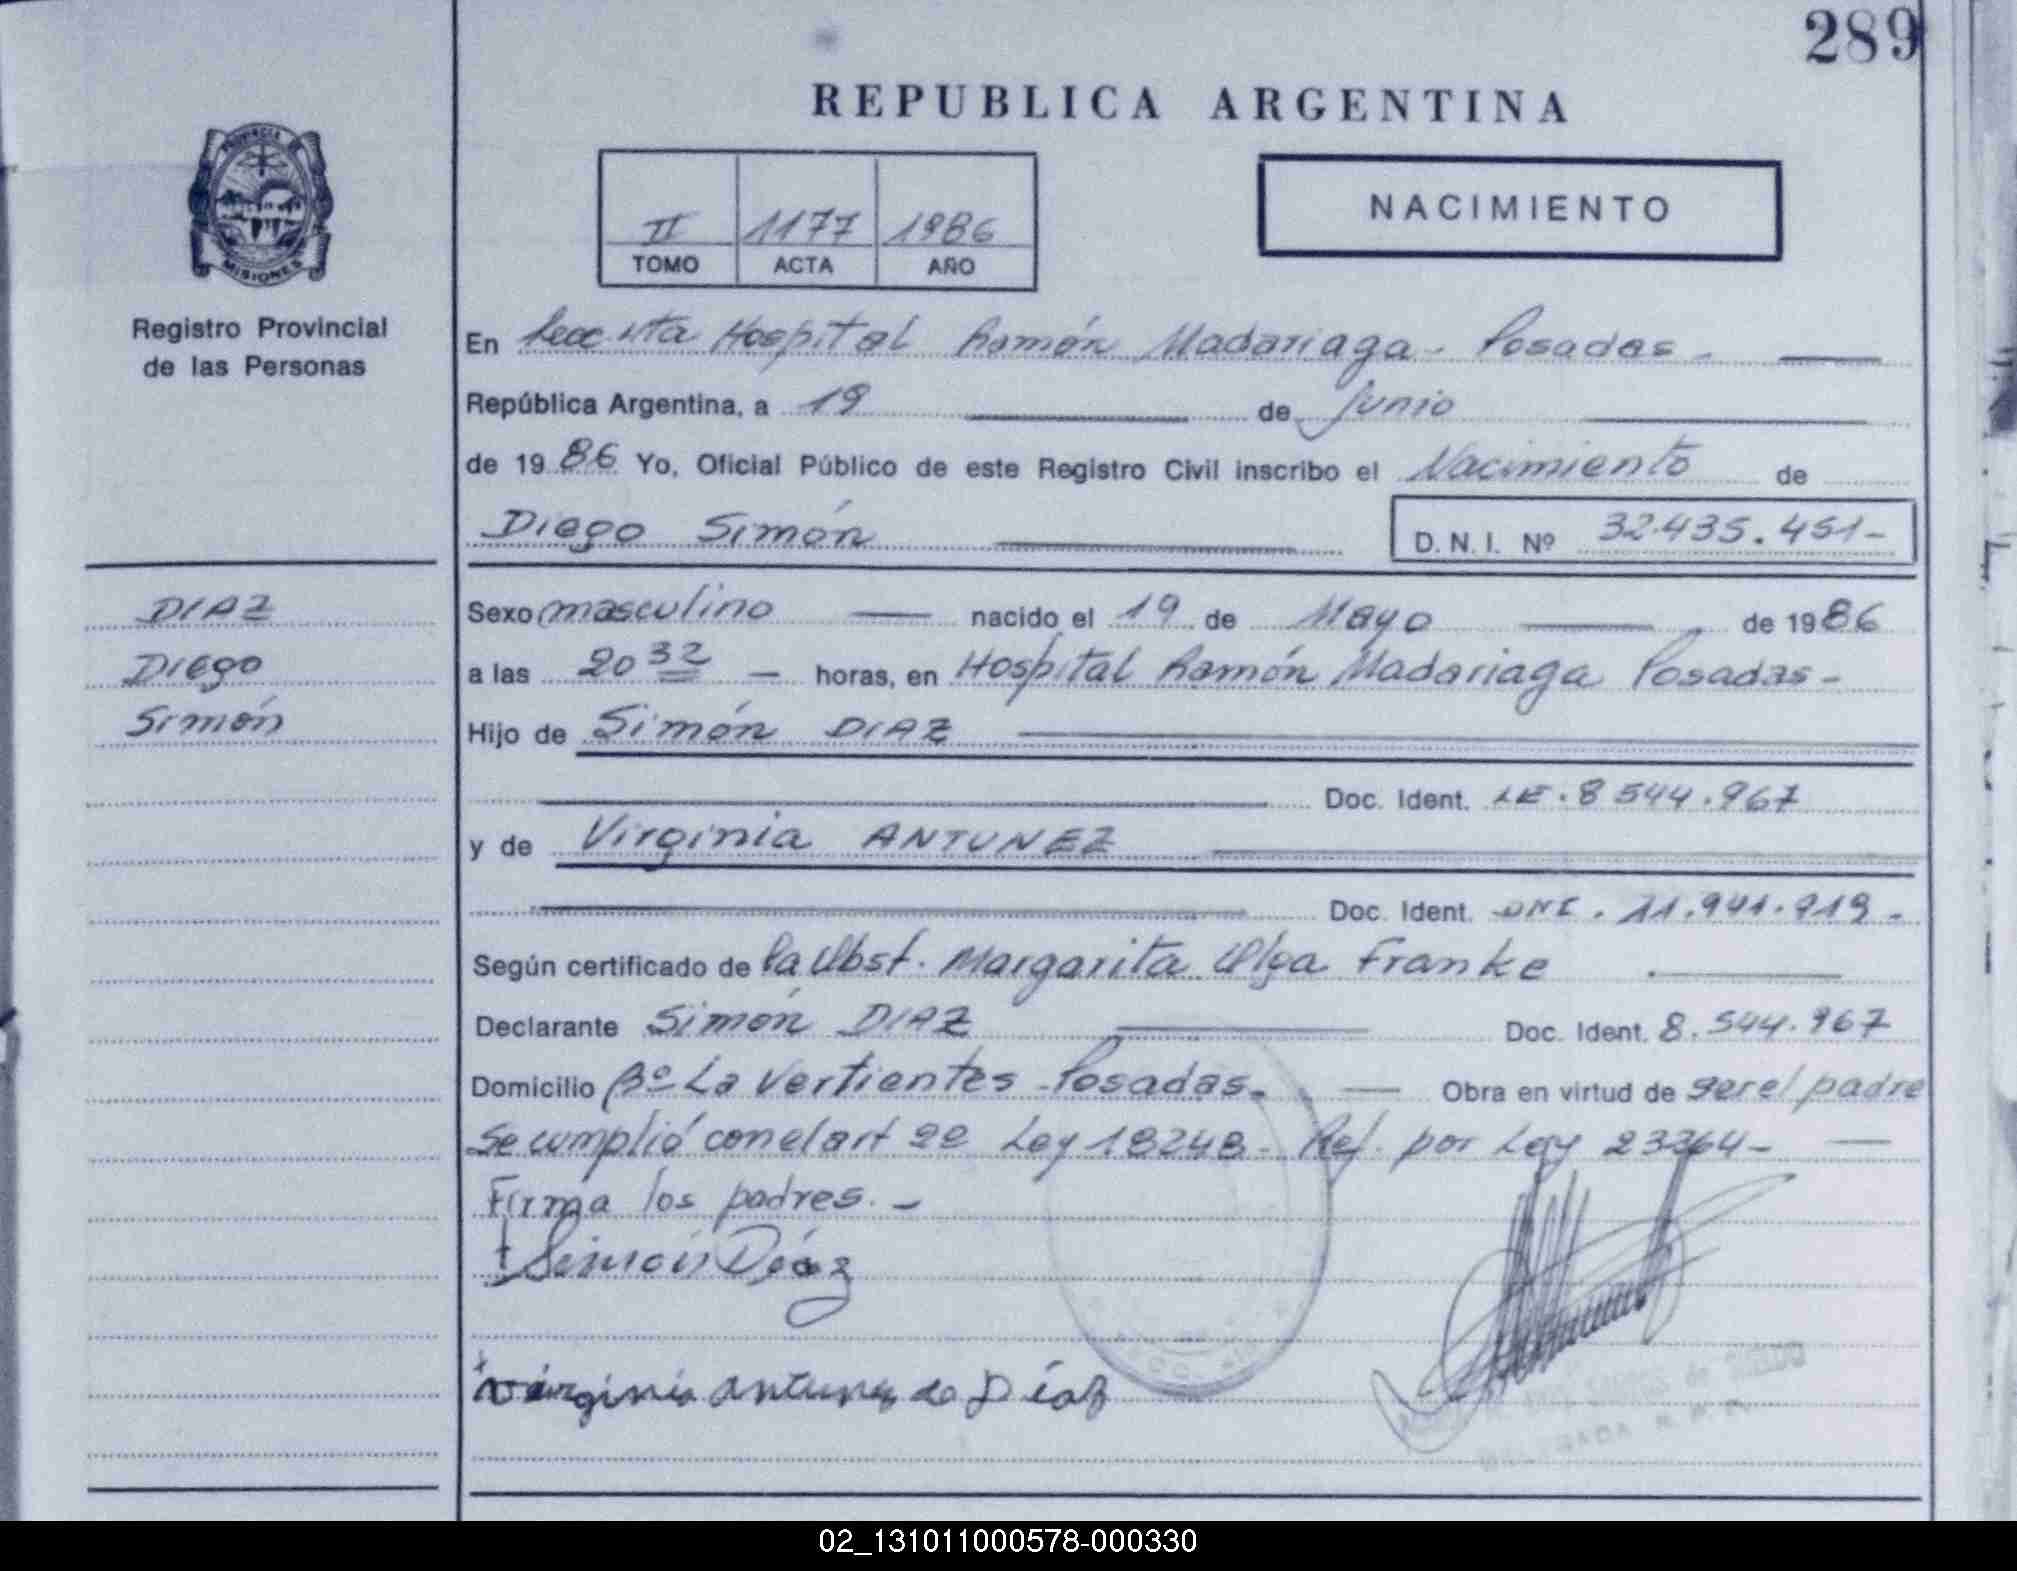 289
REPUBLICA ARGENTINA
PROVINCIA DE
MISIONES
Registro Provincial
de las Personas
II 1177 1986
TOMO ACTA AÑO
NACIMIENTO
En Hospital Ramón Madariaga - Posadas -
República Argentina, a 19 de junio
de 1986 Yo, Oficial Público de este Registro Civil inscribo el Nacimiento de
Diego Simón D.N.I. Nº 32.435.451-
DIAZ
Diego
Simón
Sexo masculino nacido el 19 de Mayo de 1986
a las 20 32 - horas, en Hospital Ramón Madariaga Posadas-
Hijo de Simón DIAZ
Doc. Ident. LE. 8 544.967
y de Virginia ANTUNEZ
Doc. Ident. DNI. 11.941.919-
Según certificado de la Obst. Margarita Olga Franke
Declarante Simón DIAZ Doc. Ident. 8.544.967
Domicilio Bº La Vertientes - Posadas. - Obra en virtud de ser el padre
Se cumplió con el art 2º Ley 18248 - Ref. por Ley 23264 -
Firma los padres. -
Simón Díaz
Virginia Antunez de Díaz
02_131011000578-000330